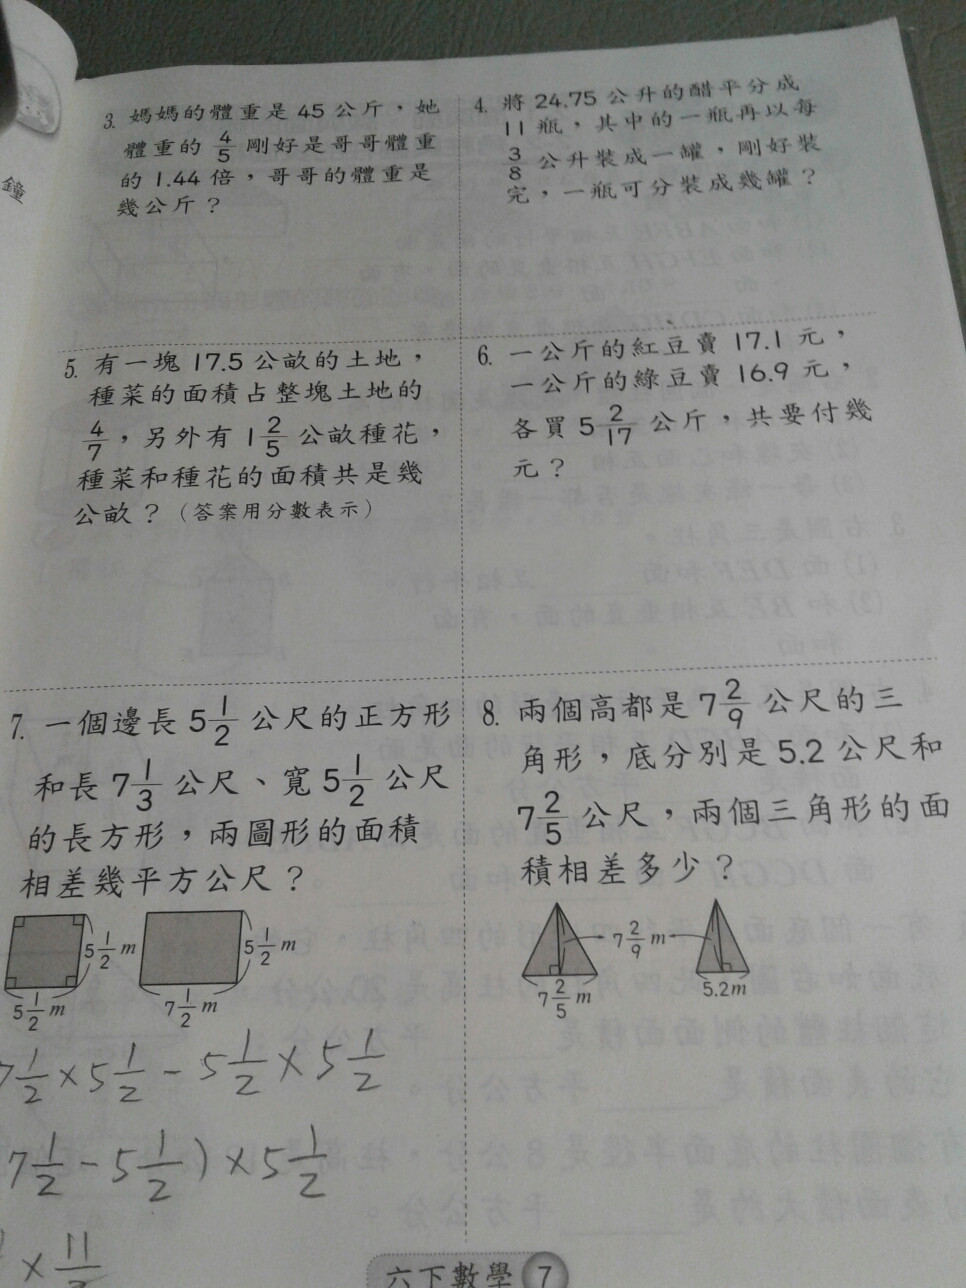 鐘
3. 媽媽的體重是 45 公斤，她
體重的 4/5 剛好是哥哥體重
的 1.44 倍，哥哥的體重是
幾公斤？
4. 將 24.75 公升的醋平分成
11 瓶，其中的一瓶再以每
3/8 公升裝成一罐，剛好裝
完，一瓶可分裝成幾罐？
5. 有一塊 17.5 公畝的土地，
種菜的面積占整塊土地的
4/7，另外有 1 2/5 公畝種花，
種菜和種花的面積共是幾
公畝？（答案用分數表示）
6. 一公斤的紅豆賣 17.1 元，
一公斤的綠豆賣 16.9 元，
各買 5 2/17 公斤，共要付幾
元？
7. 一個邊長 5 1/2 公尺的正方形
和長 7 1/3 公尺、寬 5 1/2 公尺
的長方形，兩圖形的面積
相差幾平方公尺？
5 1/2 m
5 1/2 m
5 1/2 m
7 1/2 m
7 1/2 × 5 1/2 - 5 1/2 × 5 1/2
7 1/2 - 5 1/2) × 5 1/2
× 11
8. 兩個高都是 7 2/9 公尺的三
角形，底分別是 5.2 公尺和
7 2/5 公尺，兩個三角形的面
積相差多少？
7 2/9 m
7 2/5 m
5.2 m
六下數學 7